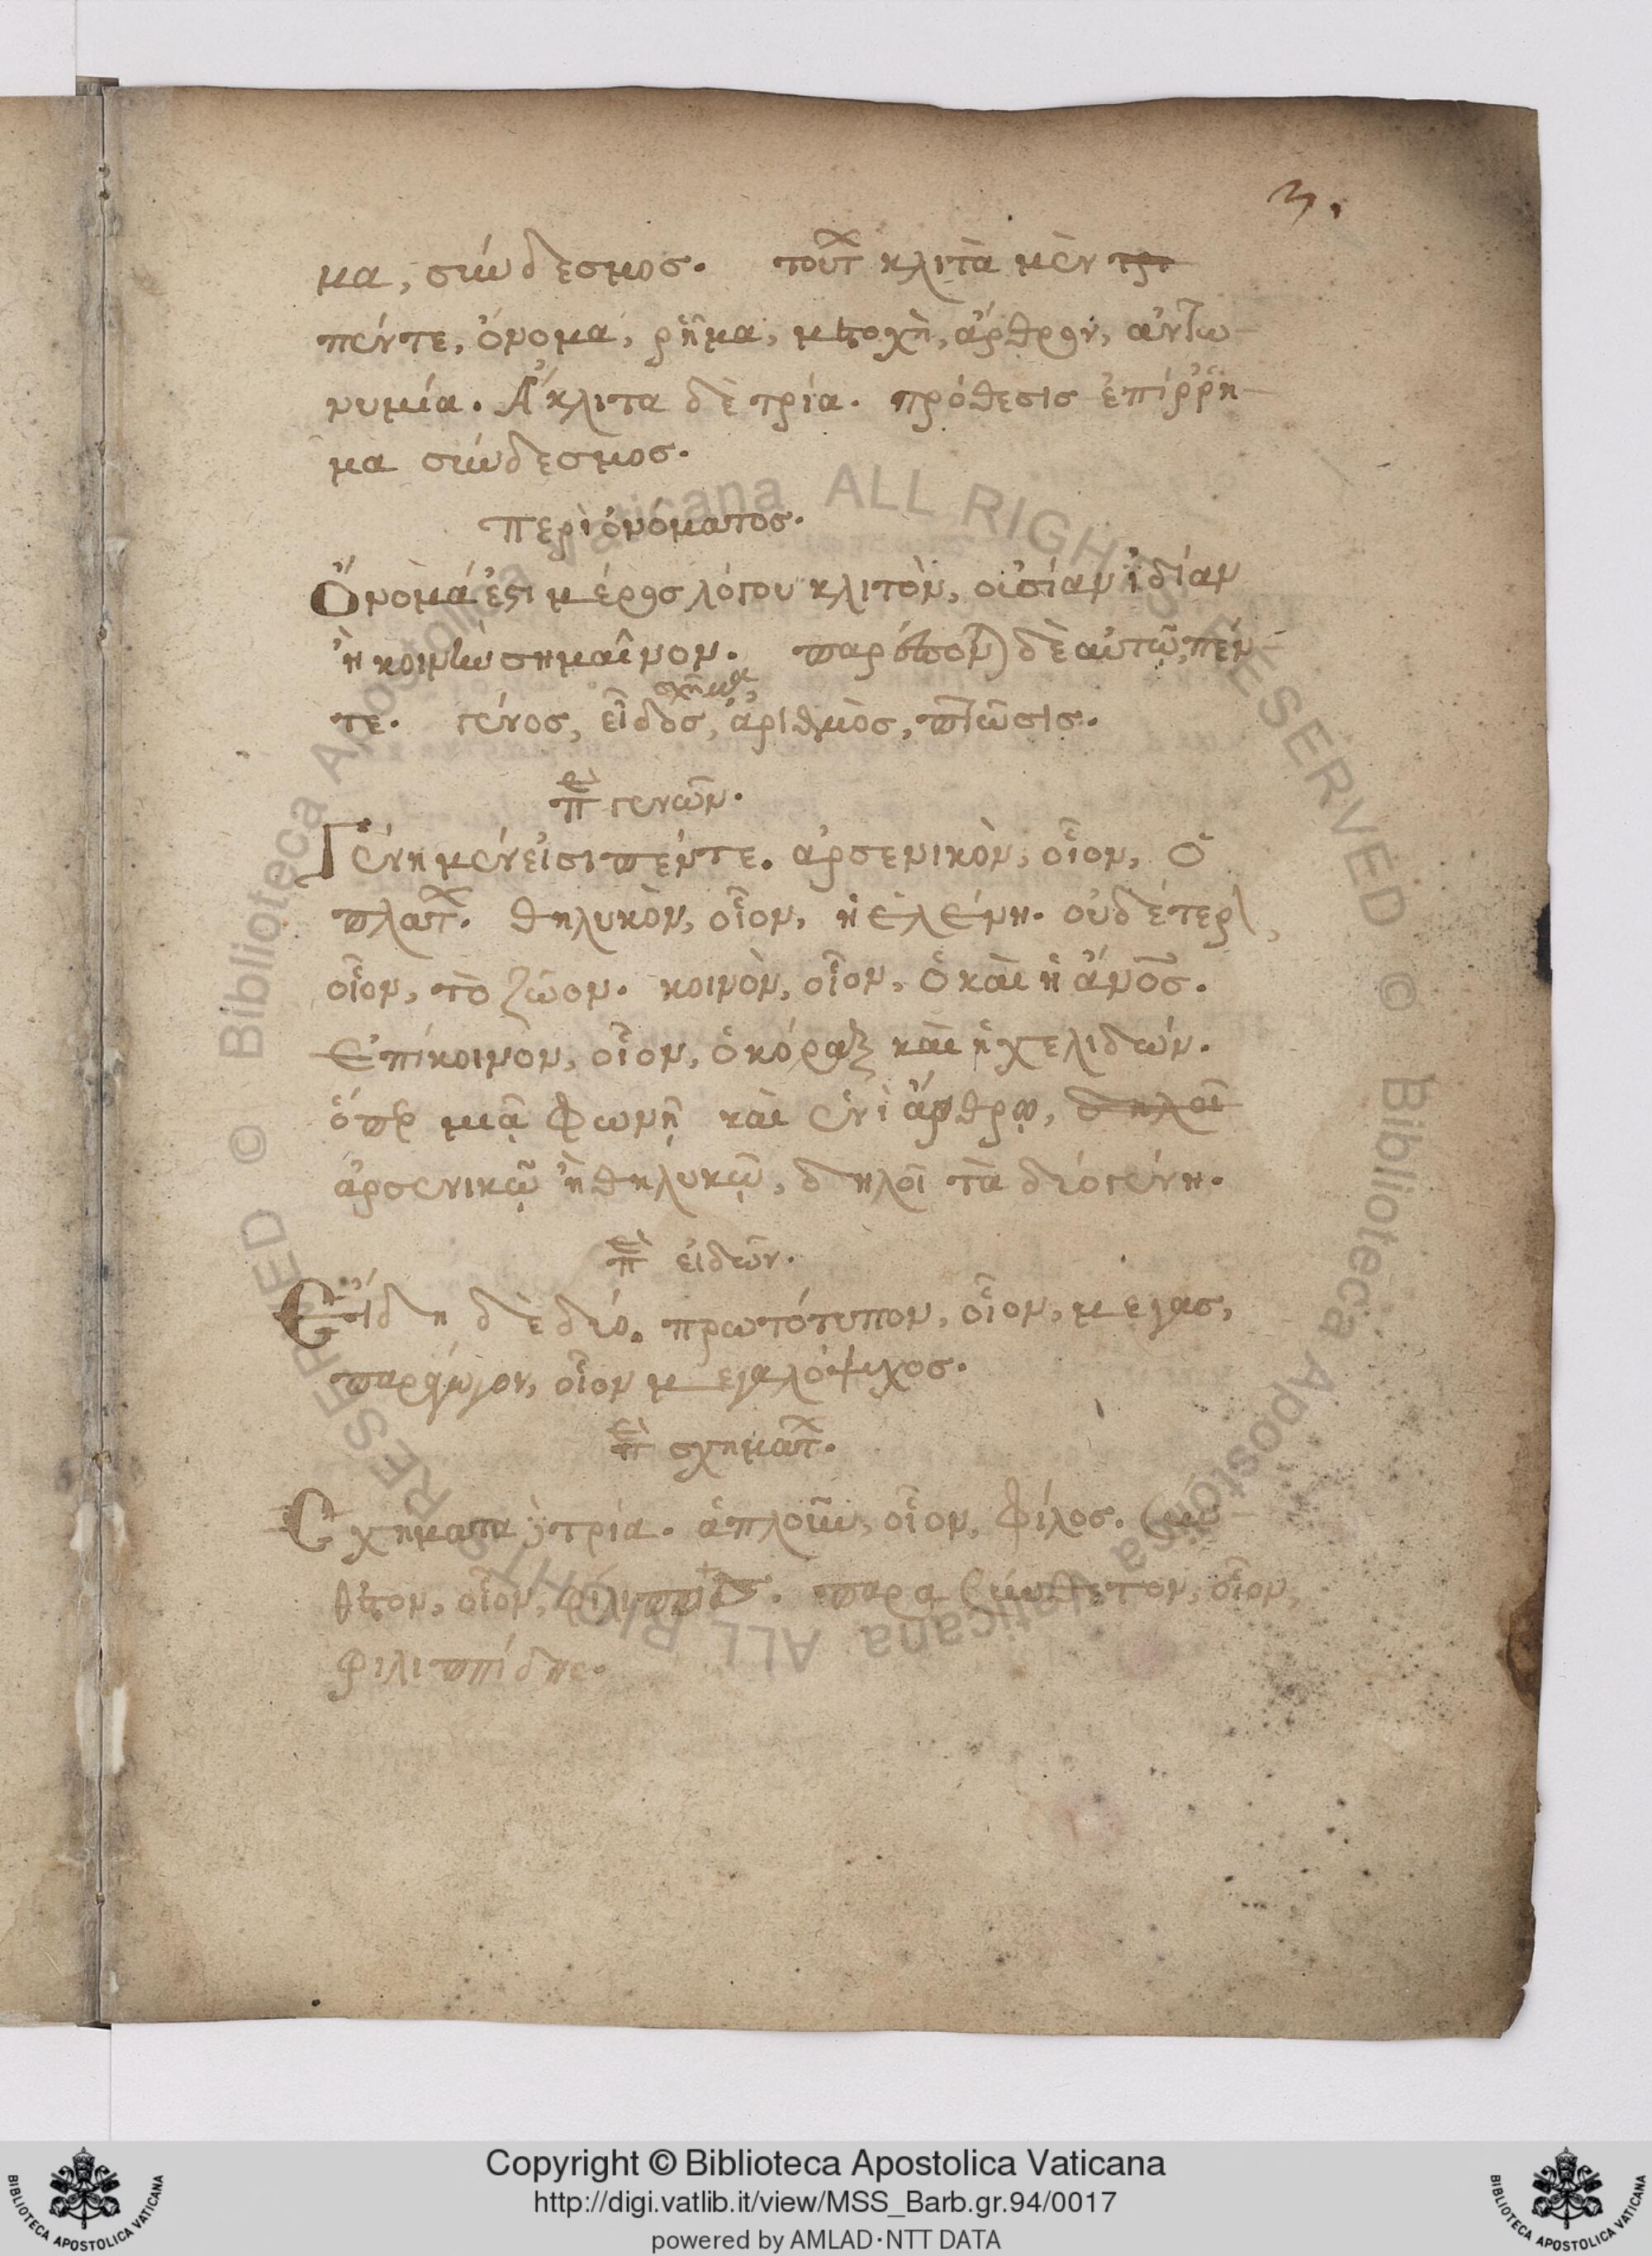 3.
μα, σύνδεσμος. τούτ κλιτὰ μὲν τρι
πέντε, ὄνομα, ῥῆμα, μετοχὴ, ἄρθρον, ἀντω-
νυμία. Ἄκλιτα δὲ τρία. πρόθεσις ἐπίῤῥη-
μα σύνδεσμος.
περὶ ὀνόματος.
Ὄνομά ἐστι μέρος λόγου κλιτὸν, οὐσίαν ἰδίαν
ἢ κοινὴν σημαῖνον. δὲ αὐτῷ πέν-
σχῆμα,
τε. γένος, εἶδος, ἀριθμὸς, πτῶσις.
περὶ γενῶν.
Γένη μέν εἰσι πέντε. ἀρσενικὸν, οἷον, ὁ
πλατ. θηλυκὸν, οἷον, ἡ ἑλένη. οὐδέτερ,
οἷον, τὸ ζῶον. κοινὸν, οἷον, ὁ καὶ ἡ ἄνος.
Ἐπίκοινον, οἷον, ὁ κόραξ καὶ ἡ χελιδών.
ὅπερ μιᾷ φωνῇ καὶ ἑνὶ ἄρθρῳ, δηλοῖ
ἀρσενικῷ ἢ θηλυκῷ, δηλοῖ τὰ δύο γένη.
περὶ εἰδῶν.
Εἴδη δὲ δύο. πρωτότυπον, οἷον, μέγας,
παράγωγον, οἷον μεγαλόψυχος.
περὶ σχημάτ.
Σχήματα τρία. ἁπλοῦν, οἷον, φίλος. σύν-
θετον, οἷον, φίλιππος. παρασύνθετον, οἷον,
φιλιππίδης.
Copyright © Biblioteca Apostolica Vaticana
http://digi.vatlib.it/view/MSS_Barb.gr.94/0017
powered by AMLAD·NTT DATA
BIBLIOTECA APOSTOLICA VATICANA
BIBLIOTECA APOSTOLICA VATICANA
© Biblioteca Apostolica Vaticana ALL RIGHTS RESERVED
© Biblioteca Apostolica Vaticana ALL RIGHTS RESERVED